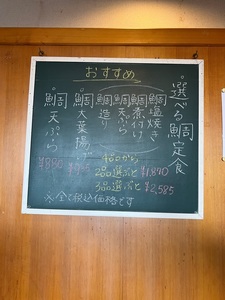 おすすめ
選べる鯛定食
鯛塩焼き
鯛煮付け
鯛天ぷら
鯛造り
4品から
2品選ぶと ¥1,870
3品選ぶと ¥2,585
鯛大葉揚げ
鯛天ぷら
¥880
※全て税込価格です